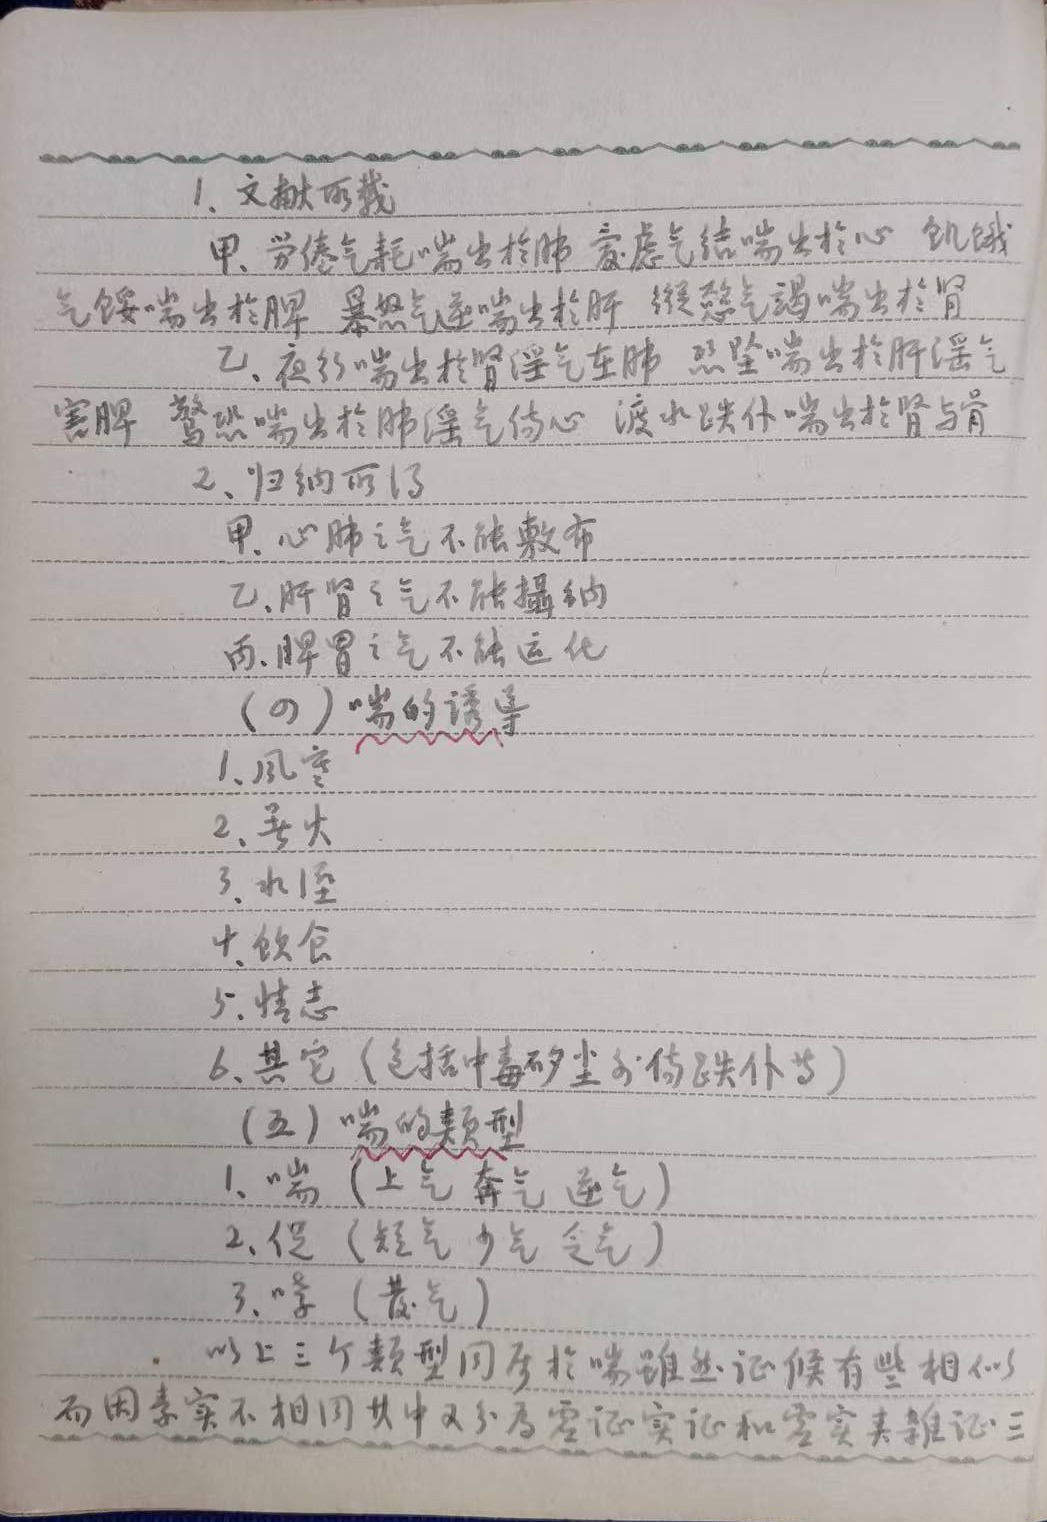 1、文献所载
甲、劳倦气耗喘出於肺 憂虑气结喘出於心 饥饿
气馁喘出於脾 暴怒气逆喘出於肝 纵慾气竭喘出於肾
乙、夜行喘出於肾淫气在肺 恐坠喘出於肝淫气
害脾 驚恐喘出於肺淫气伤心 渡水跌仆喘出於肾与骨
2、归纳所得
甲、心肺之气不能敷布
乙、肝肾之气不能攝纳
丙、脾胃之气不能运化
(四)喘的誘导
1、風寒
2、暑火
3、水溼
4、饮食
5、情志
6、其它(包括中毒矽尘外伤跌仆等)
(五)喘的类型
1、喘(上气 奔气 逆气)
2、促(短气 少气 乏气)
3、哮(發气)
以上三个类型同属於喘雖然证候有些相似
而因素实不相同其中又分为虚证实证和虚实夹雜证三